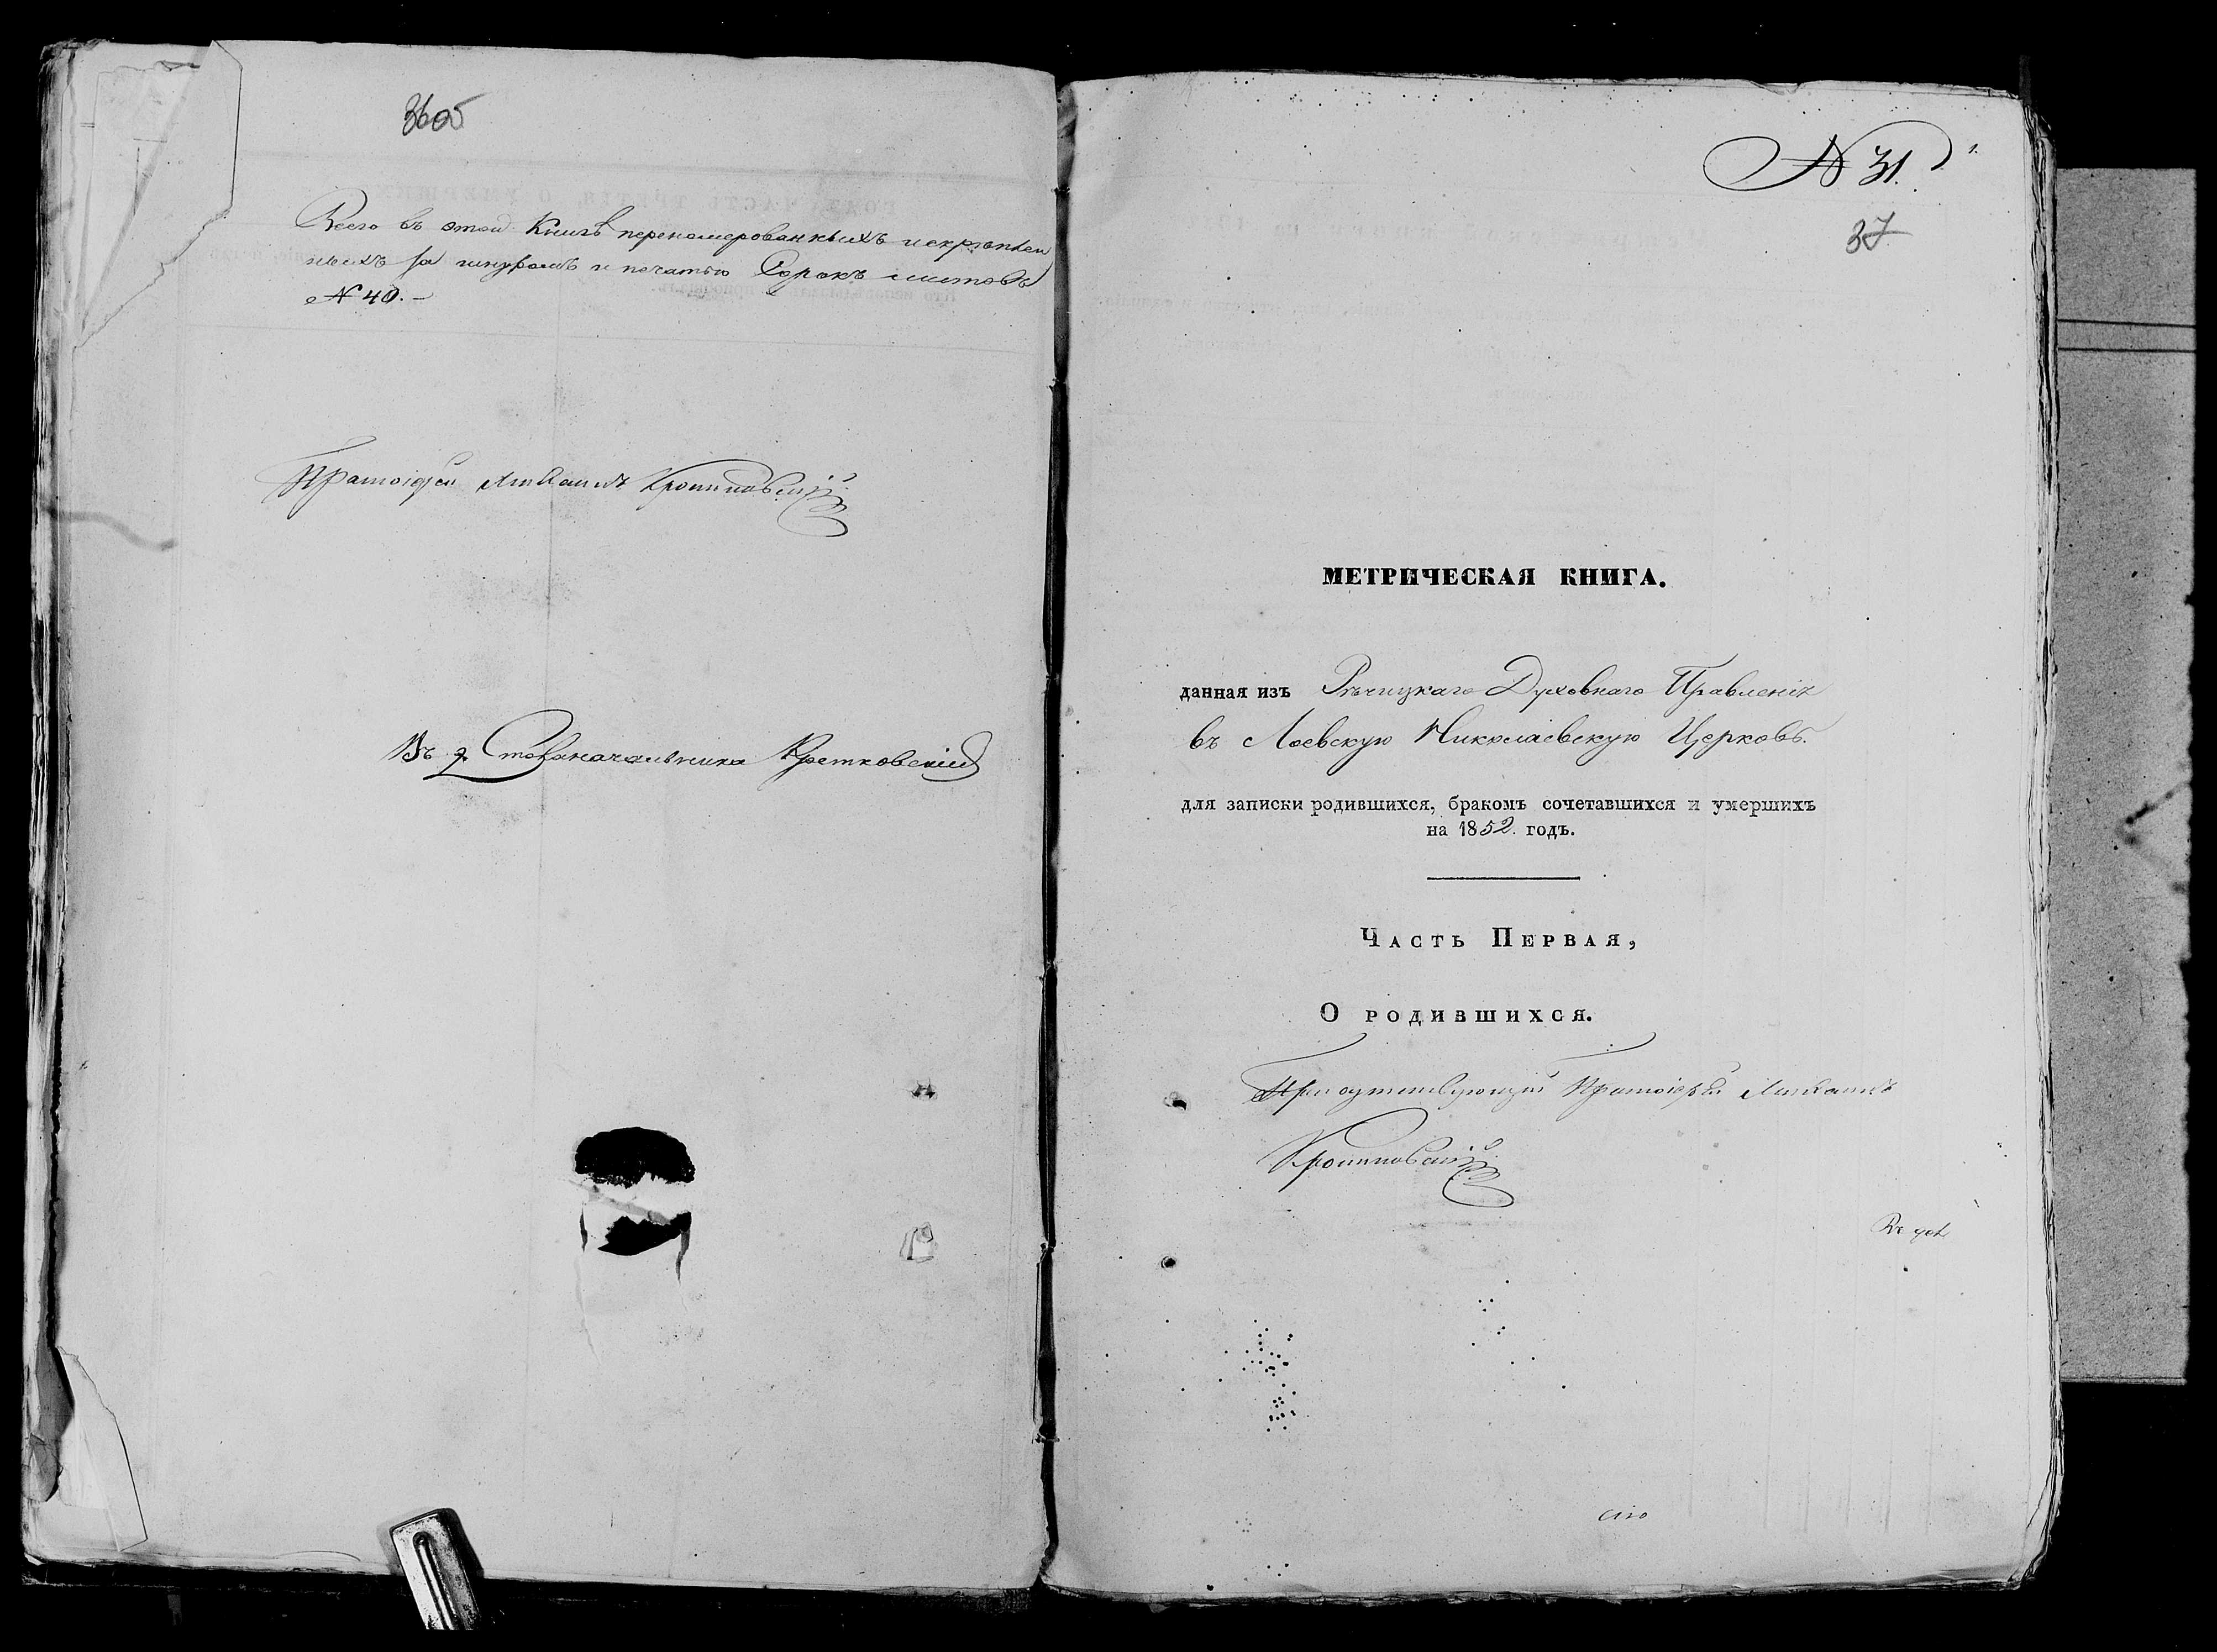 36об
Всего въ этой Книгѣ перенамерованныхъ искреплен
ныхъ за шнуромъ и печатью Сорокъ листовъ
№ 40. –
Протоіерей
Въ д. Столоначальника
№ 31.
1.
37
МЕТРИЧЕСКАЯ КНИГА.
данная изъ Рѣчицкаго Духовнаго Правленія
въ Лоевскую Николаевскую Церковь.
для записки родившихся, бракомъ сочетавшихся и умершихъ
на 1852. годъ.
Часть Первая,
О родившихся.
Присутствующій Протоіерей